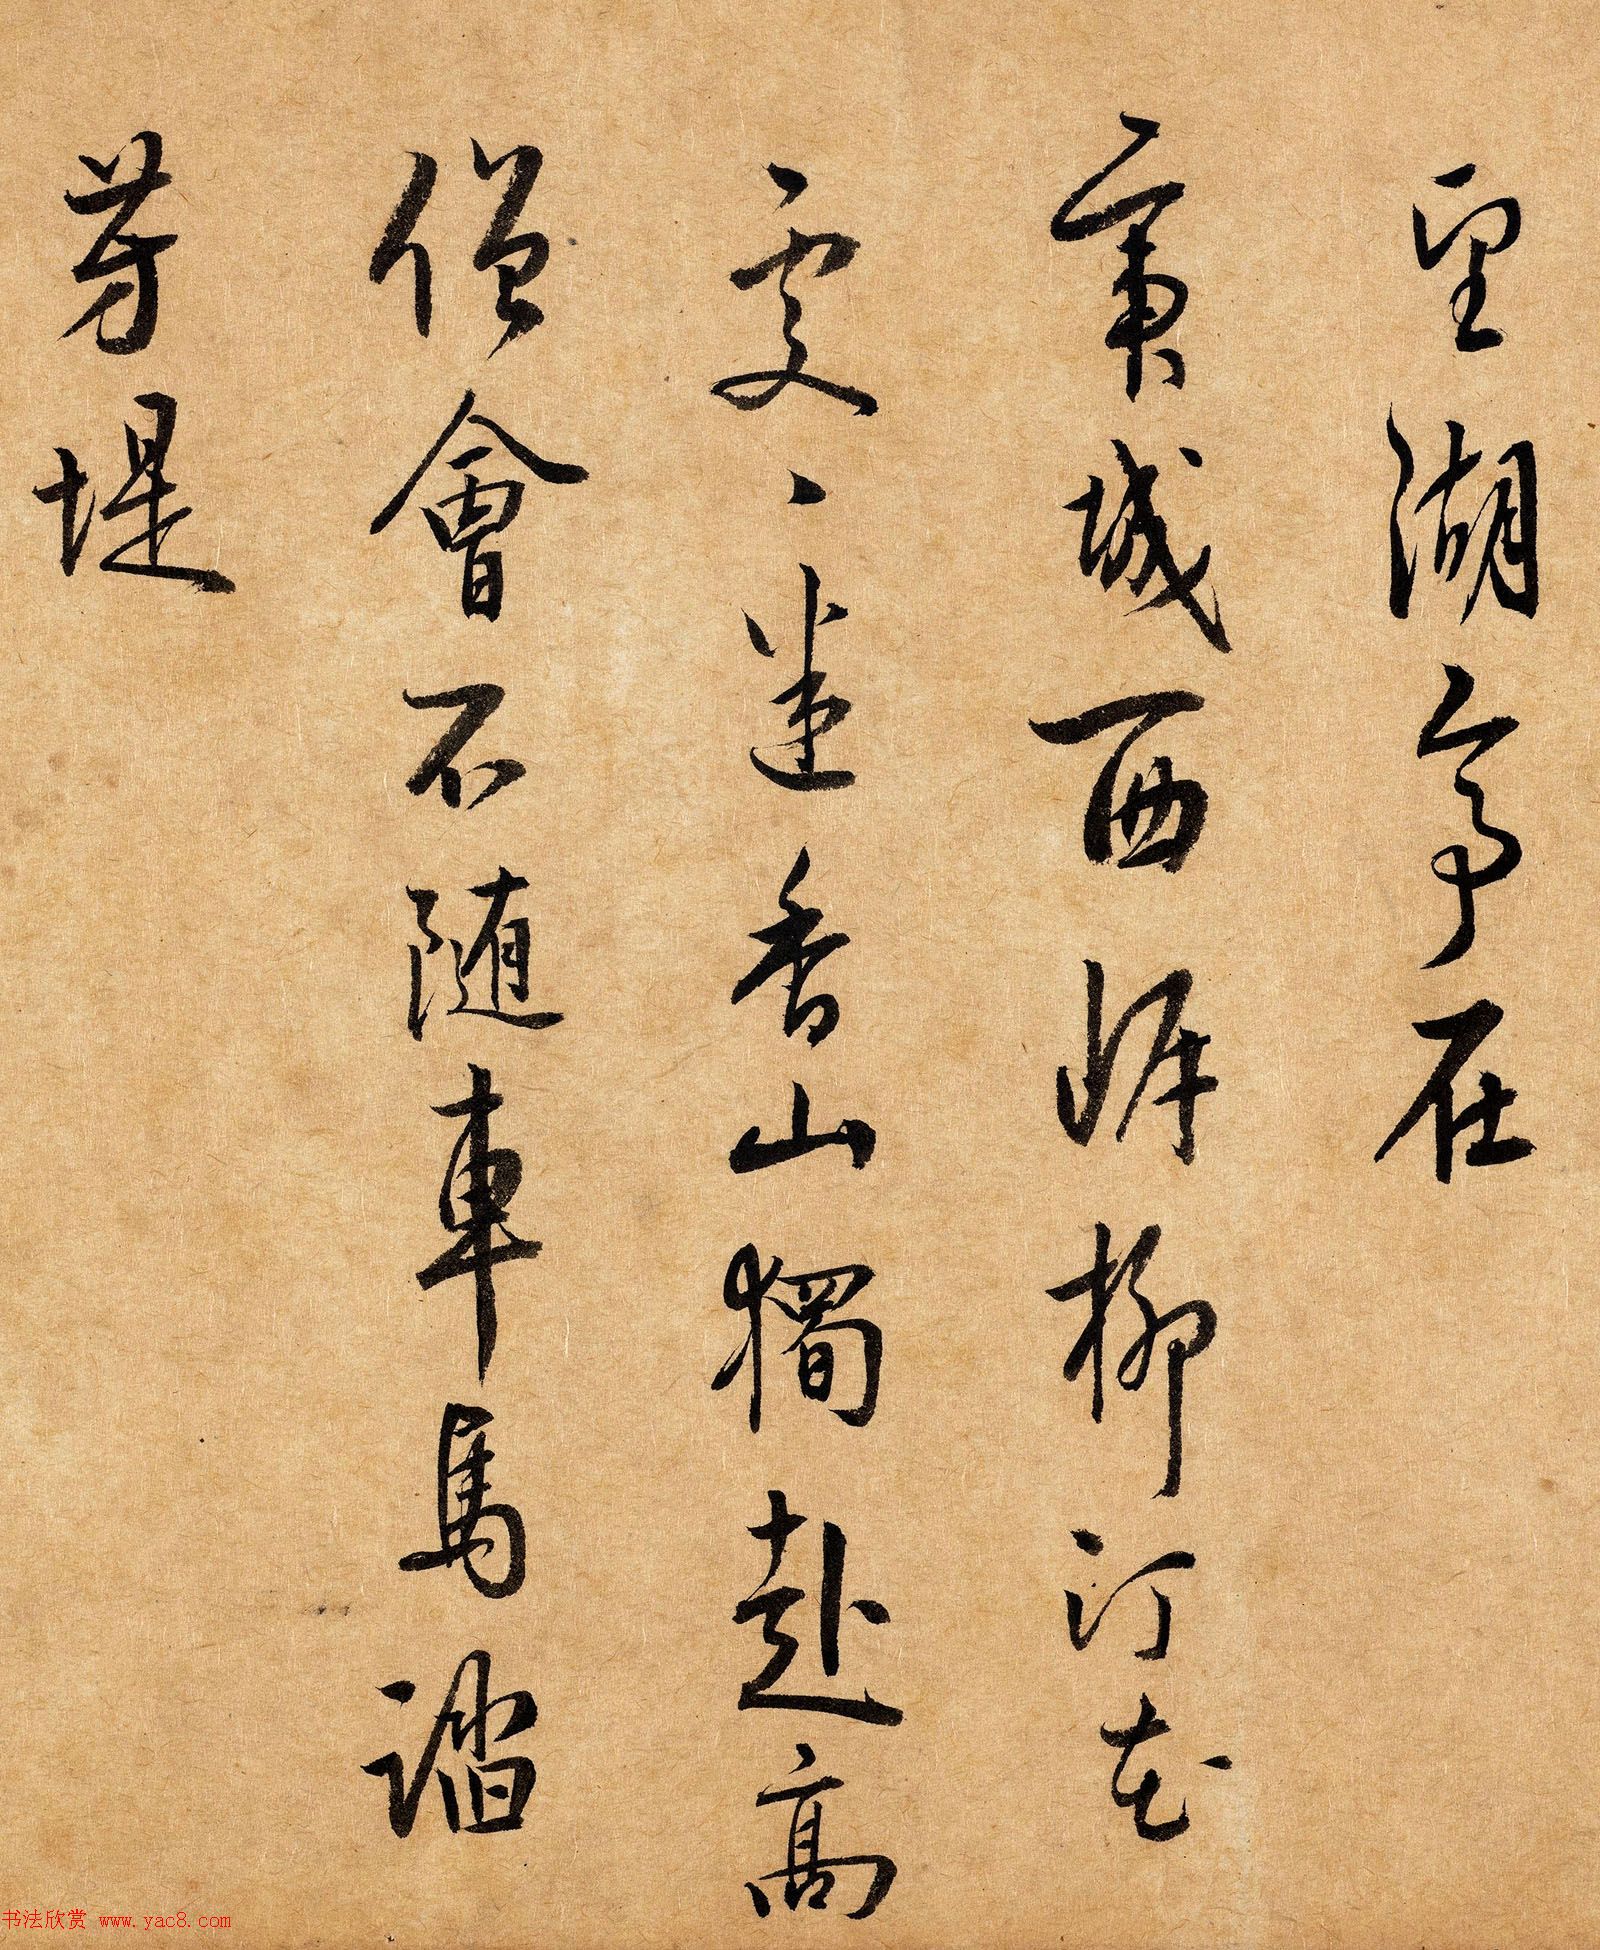 望湖亭在
帝城西岸柳汀花
處處迷香山獨赴高
僧會不隨車馬踏
芳堤
书法欣赏 www.yac8.com